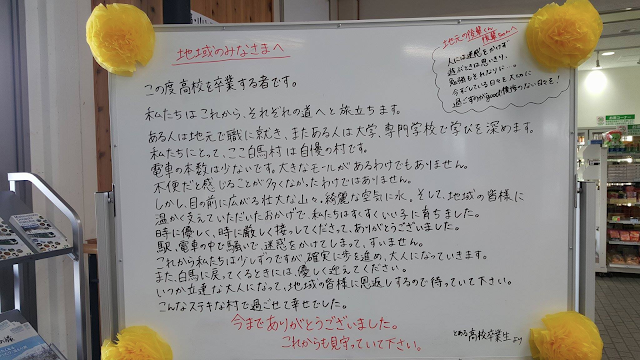 地域のみなさまへ
この度高校を卒業する者です。
私たちはこれから、それぞれの道へと旅立ちます。
ある人は地元で職に就き、またある人は大学、専門学校で学びを深めます。
私たちにとって、ここ白馬村は自慢の村です。
電車の本数は少ないです。大きなモールがあるわけでもありません。
不便だと感じることが多くなかったわけではありません。
しかし、目の前に広がる壮大な山々、綺麗な空気に水。そして、地域の皆様に
温かく支えていただいたおかげで、私たちはすくすくいい子に育ちました。
時に優しく、時に厳しく接してくださって、ありがとうございました。
駅、電車の中で騒いで、迷惑をかけてしまって、すいません。
これから私たちは少しずつですが確実に歩を進め、大人になっていきます。
また、白馬に戻ってくるときには、優しく迎えてください。
いつか立派な大人になって、地域の皆様に恩返しするので待っていて下さい。
こんなステキな村で過ごせて幸せでした。
今までありがとうございました。
これからも見守っていて下さい。
とある高校卒業生より
地元の後輩くん
後輩ちゃんへ
人には迷惑をかけず
遊ぶときは思いきり、
勉強もそれなりに…。
今すごしている日々を大切に
過ごすのがgood！後悔のない日々を！